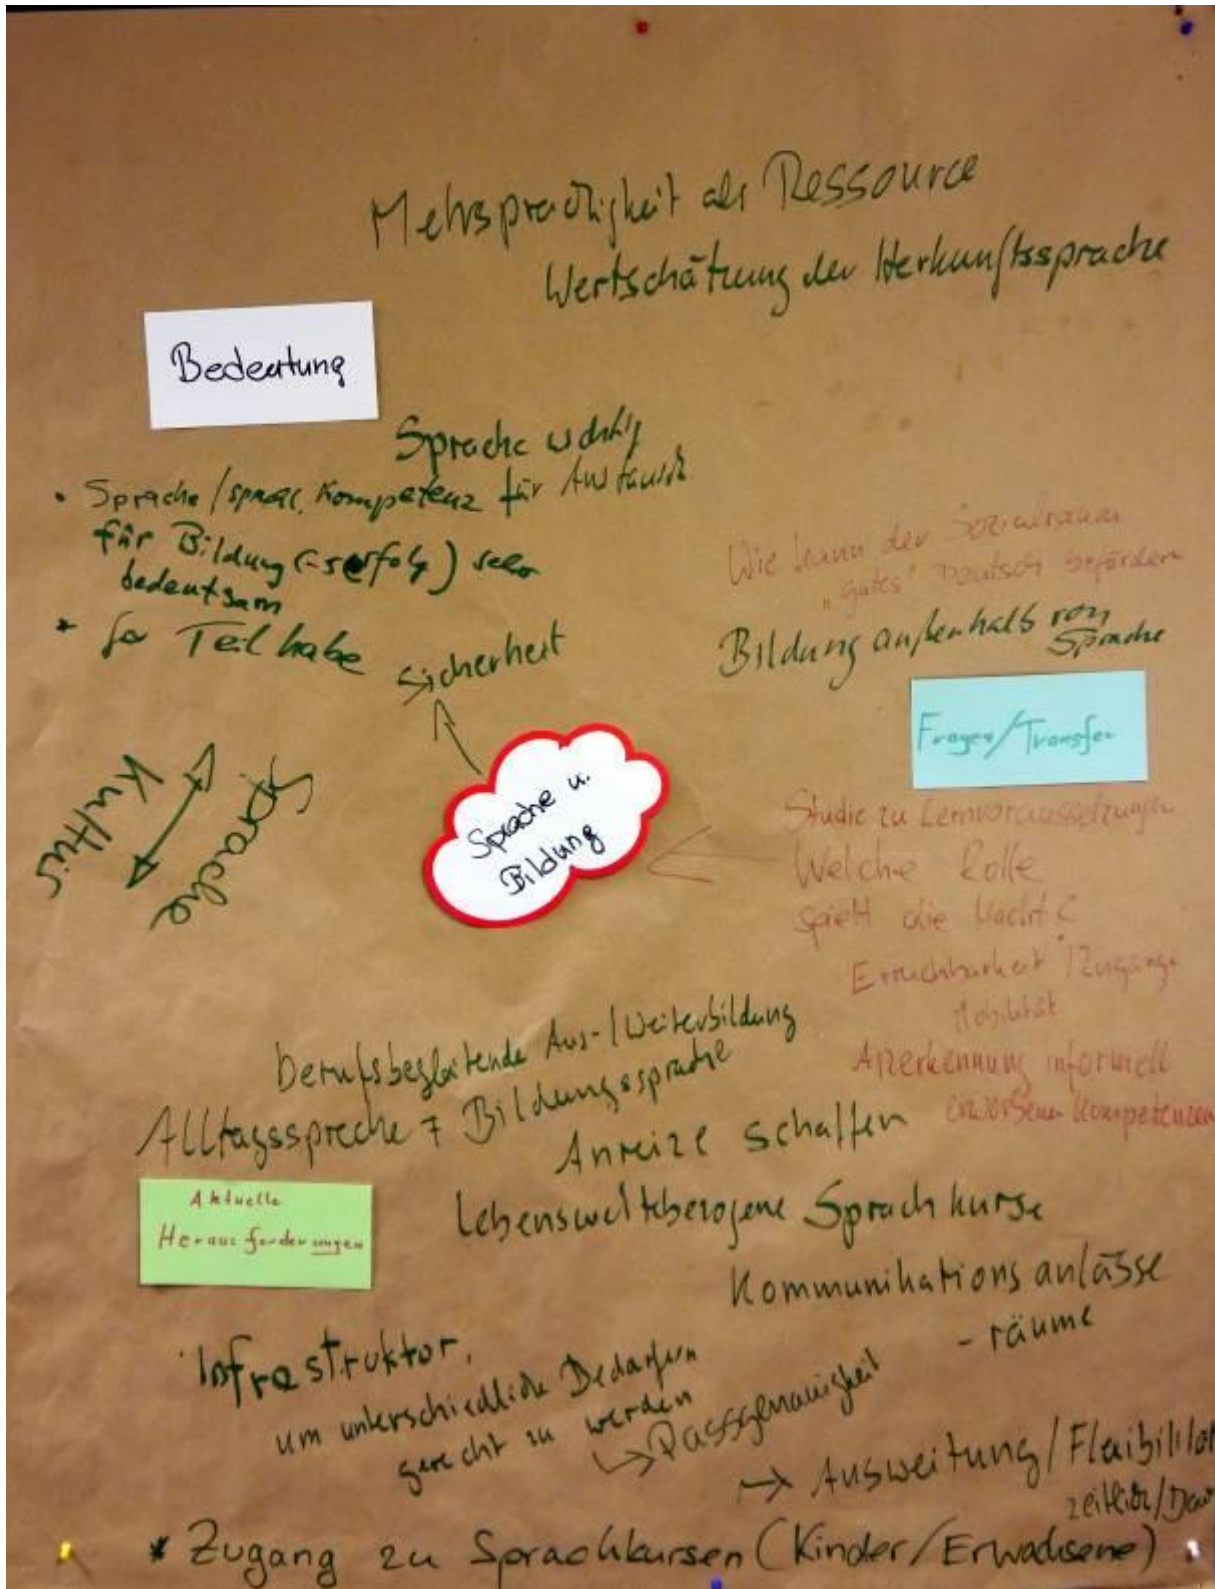 Mehrsprachigkeit als Ressource
Wertschätzung der Herkunftssprache
Bedeutung
Sprache wichtig
für Austausch
• Sprache/sprachl. Kompetenz
für Bildung (-serfolg) sehr
bedeutsam
• für Teilhabe
Sicherheit
Kultur
Sprache
Sprache u.
Bildung
Wie kann der Sozialraum
"gutes" Deutsch befördern
Bildung außerhalb von
Sprache
Fragen/Transfer
Studie zu Lernvoraussetzungen
Welche Rolle
spielt die Macht?
Erreichbarkeit/Zugänge
Mobilität
Anerkennung informell
erworbener Kompetenzen
Berufsbegleitende Aus-/Weiterbildung
Alltagssprache ≠ Bildungssprache
Anreize schaffen
Aktuelle
Herausforderungen
Lebensweltbezogene Sprachkurse
Kommunikationsanlässe
- räume
Infrastruktur,
um unterschiedliche Bedarfen
gerecht zu werden
→ Passgenauigkeit
→ Ausweitung/Flexibilität
zeitlich/Dau
* Zugang zu Sprachkursen (Kinder/Erwachsene)